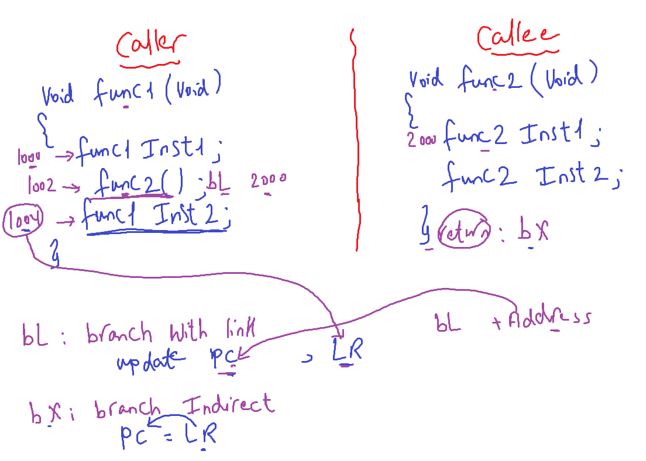 Caller
Void func1 (Void)
{
1000 → func1 Inst1;
1002 → func2() ; bL 2000
1004 → func1 Inst 2;
}
Callee
void func2 (Void)
{
2000 func2 Inst1;
func2 Inst2;
} return : bX
bL : branch with link
update PC , LR
bL + Address
bX : branch Indirect
PC = LR